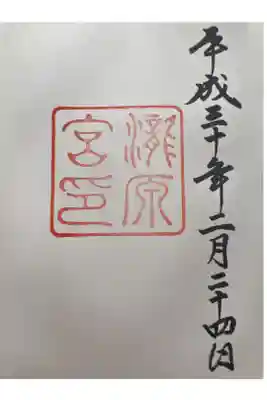 平成三十年二月二十四日
瀧原
宮印